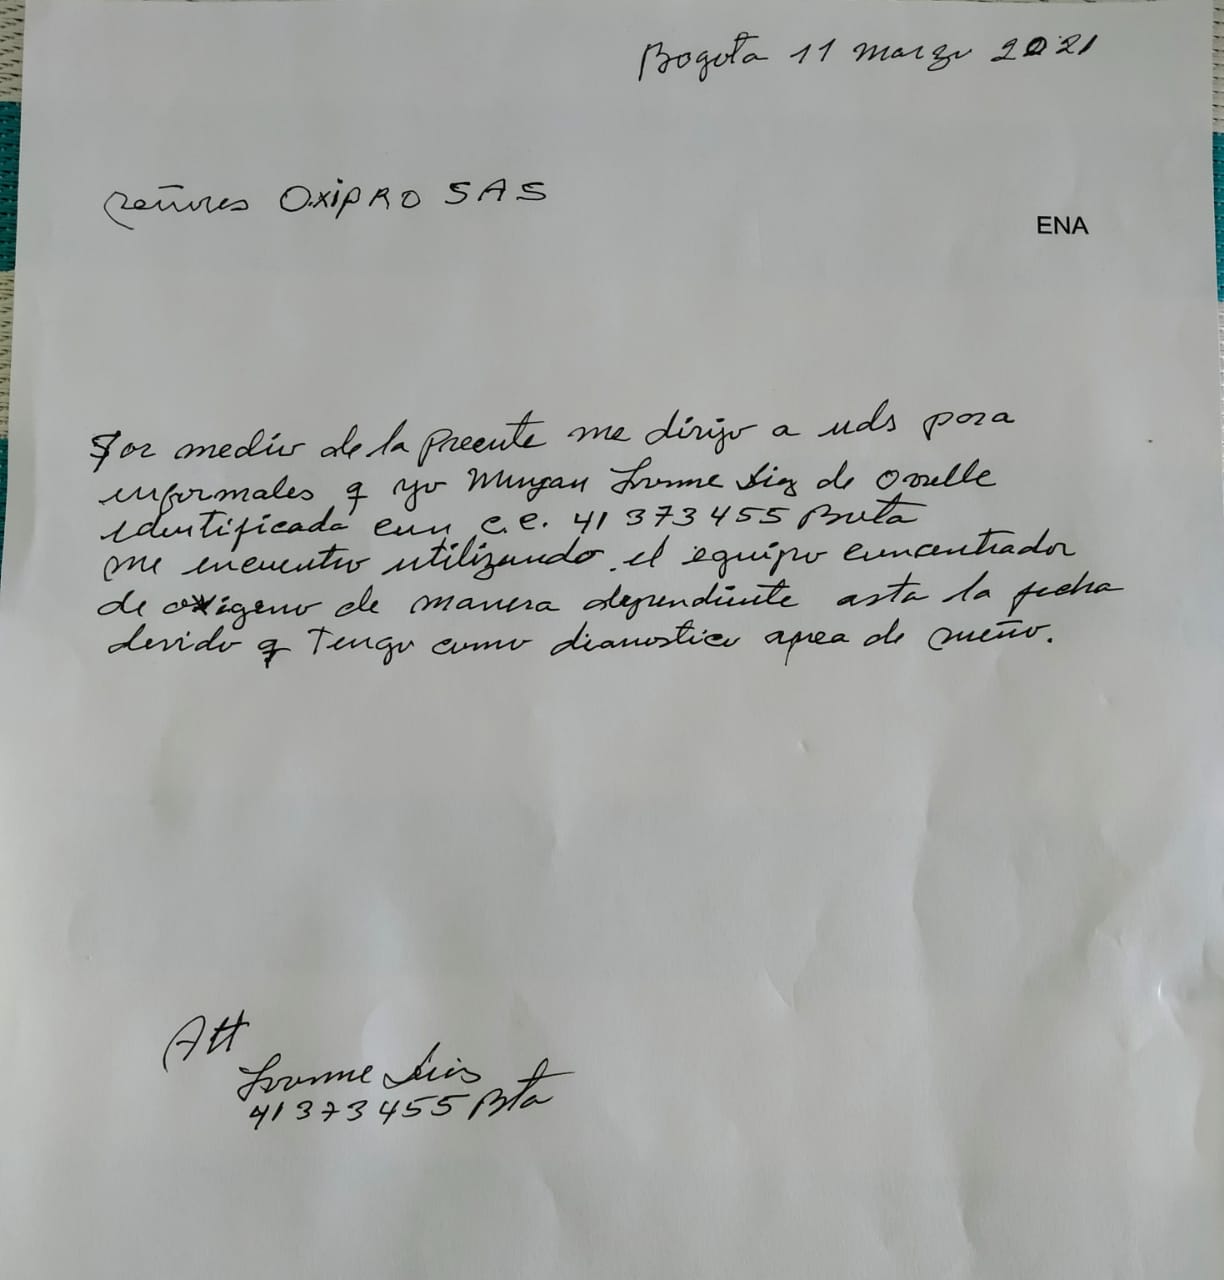 Bogota 11 marzo 2021
Señores OxiPRO SAS
ENA
Por medio de la Preente me dirijo a uds para
informales q yo Ivonne de
identificada con c.c. 41 373 455 Bota
me encuentro utilizando el equipo concentrador
de oxigeno de manera dependiente asta la fecha
devido q Tengo como dianostico apnea de sueño.
Att
Ivonne
41373455 Bta